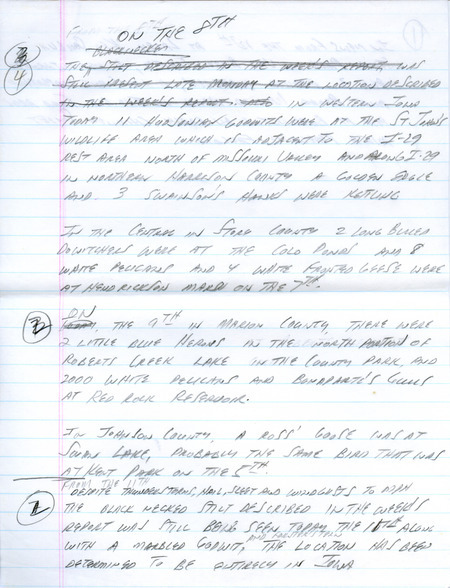 ON THE 8TH
BLACKNECKED
3
4
THE STILT DESCRIBED IN THE WEEK'S REPORT WAS
STILL PRESENT LATE MONDAY AT THE LOCATION DESCRIBED
IN THE WEEK'S REPORT. IN WESTERN IOWA
TODAY 11 HUDSONIAN GODWITS WERE AT THE ST. JOHN'S
WILDLIFE AREA WHICH IS ADJACENT TO THE I-29
REST AREA NORTH OF MISSOURI VALLEY AND ALONG I-29
IN NORTHERN HARRISON COUNTY A GOLDEN EAGLE
AND 3 SWAINSON'S HAWKS WERE KETTLING
IN THE CENTRAL IN STORY COUNTY 2 LONG BILLED
DOWITCHERS WERE AT THE COLO PONDS AND 8
WHITE PELICANS AND 4 WHITE FRONTED GEESE WERE
AT HENDRICKSON MARSH ON THE 7TH.
ON
THE 9TH IN MARION COUNTY THERE WERE
2 LITTLE BLUE HERONS IN THE NORTH PORTION OF
ROBERTS CREEK LAKE IN THE COUNTY PARK, AND
2000 WHITE PELICANS AND BONAPARTE'S GULLS
AT RED ROCK RESERVOIR.
IN JOHNSON COUNTY, A ROSS' GOOSE WAS AT
SWAN LAKE, PROBABLY THE SAME BIRD THAT WAS
AT KENT PARK ON THE 5TH.
FROM THE 11TH
DESPITE THUNDERSTORMS, HAIL, SLEET AND WIND GUSTS TO MPH
THE BLACK NECKED STILT DESCRIBED IN THE WEEK'S
REPORT WAS STILL BEING SEEN TODAY THE 11TH ALONG
WITH A MARBLED GODWIT, THE LOCATION HAS BEEN
DETERMINED TO BE ENTIRELY IN IOWA